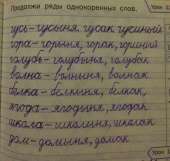 Продолжи ряды однокоренных слов.
гусь-гусыня, гусак гусиный
гора-горыня, горак, горный
голубь-голубыня, голубак
волна-волныня, волнак
белка-белкыня, белкак,
ягода-ягодыня, ягодак
школа-школыня, школак
дом-домыня, домак